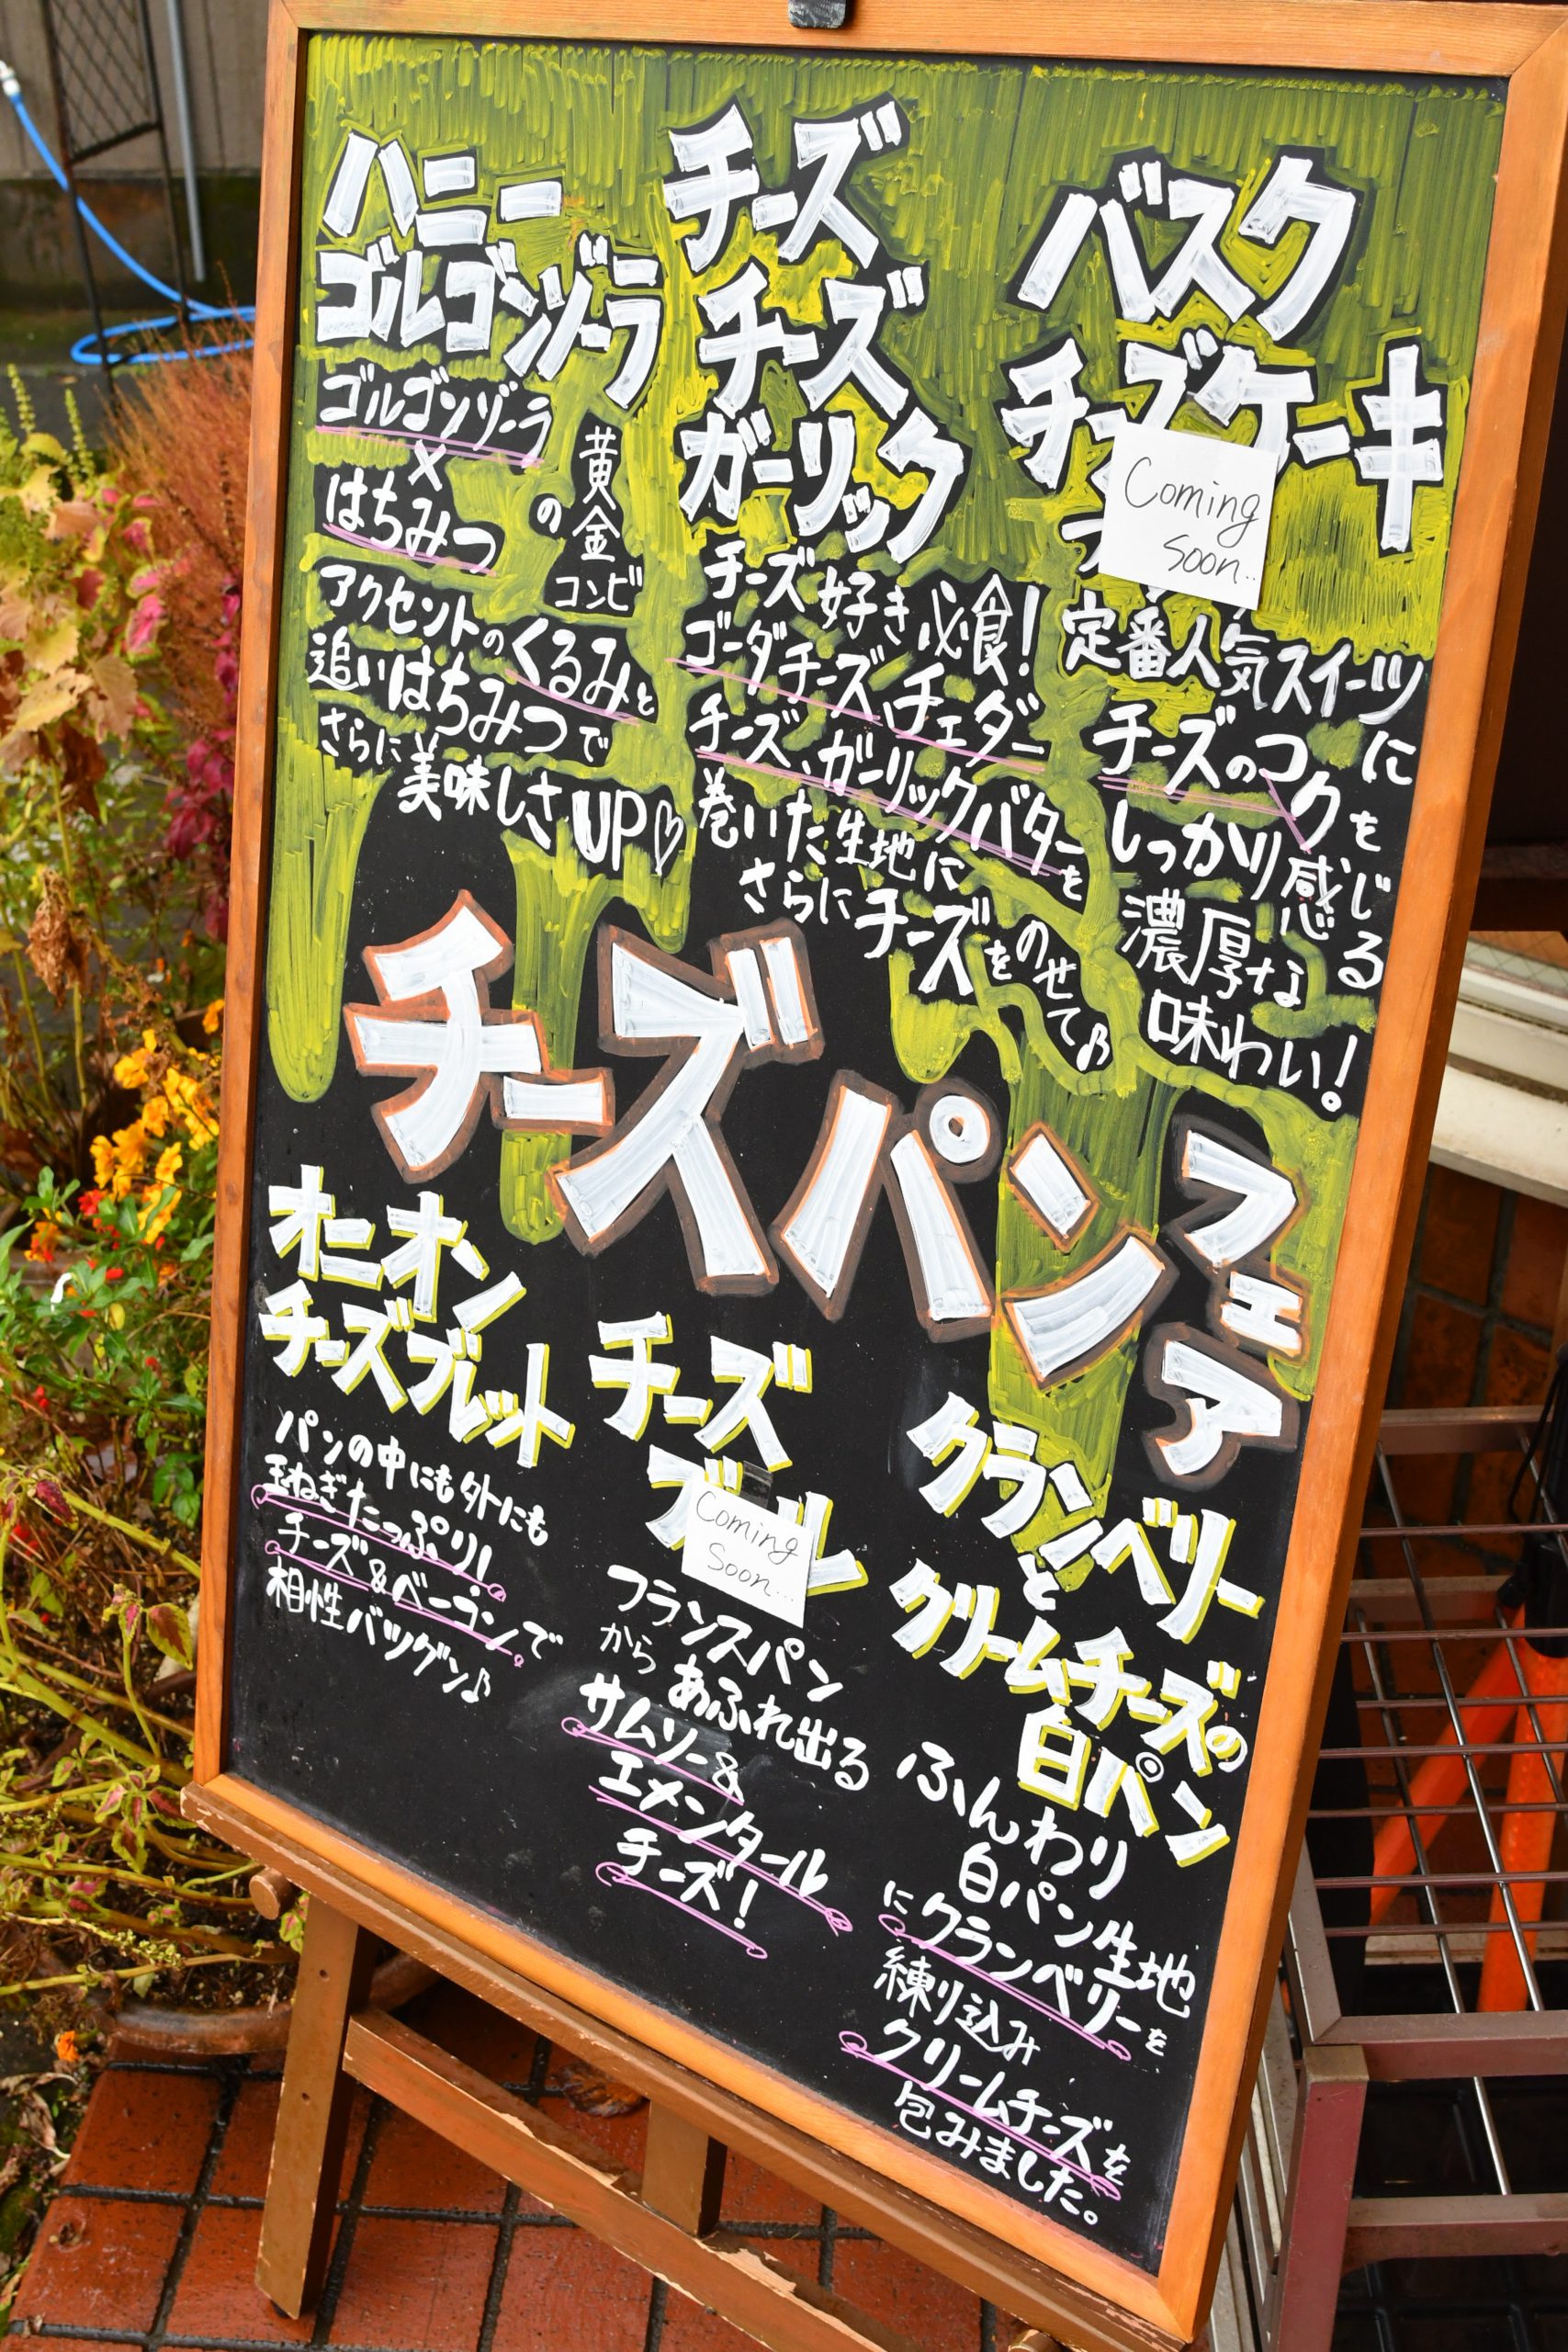 ハニー
ゴルゴンゾーラ
ゴルゴンゾーラ
×
はちみつ
の
黄金
コンビ
アクセントのくるみと
追いはちみつで
さらに美味しさUP♡
チーズ
チーズ
ガーリック
チーズ好き必食!
ゴーダチーズ、チェダー
チーズ、ガーリックバターを
巻いた生地に
さらにチーズをのせて♪
バスク
チーズケーキ
Coming
soon..
定番人気スイーツに
チーズのコクを
しっかり感じる
濃厚な
味わい!
チーズパン
フェア
オニオン
チーズブレット
パンの中にも外にも
玉ねぎたっぷり!
チーズ&ベーコンで
相性バツグン♪
チーズ
Coming
Soon...
フランスパン
からあふれ出る
サムソー&
エメンタール
チーズ!
クランベリー
と
クリームチーズの
白パン
ふんわり
白パン生地
にクランベリーを
練り込み
クリームチーズを
包みました。